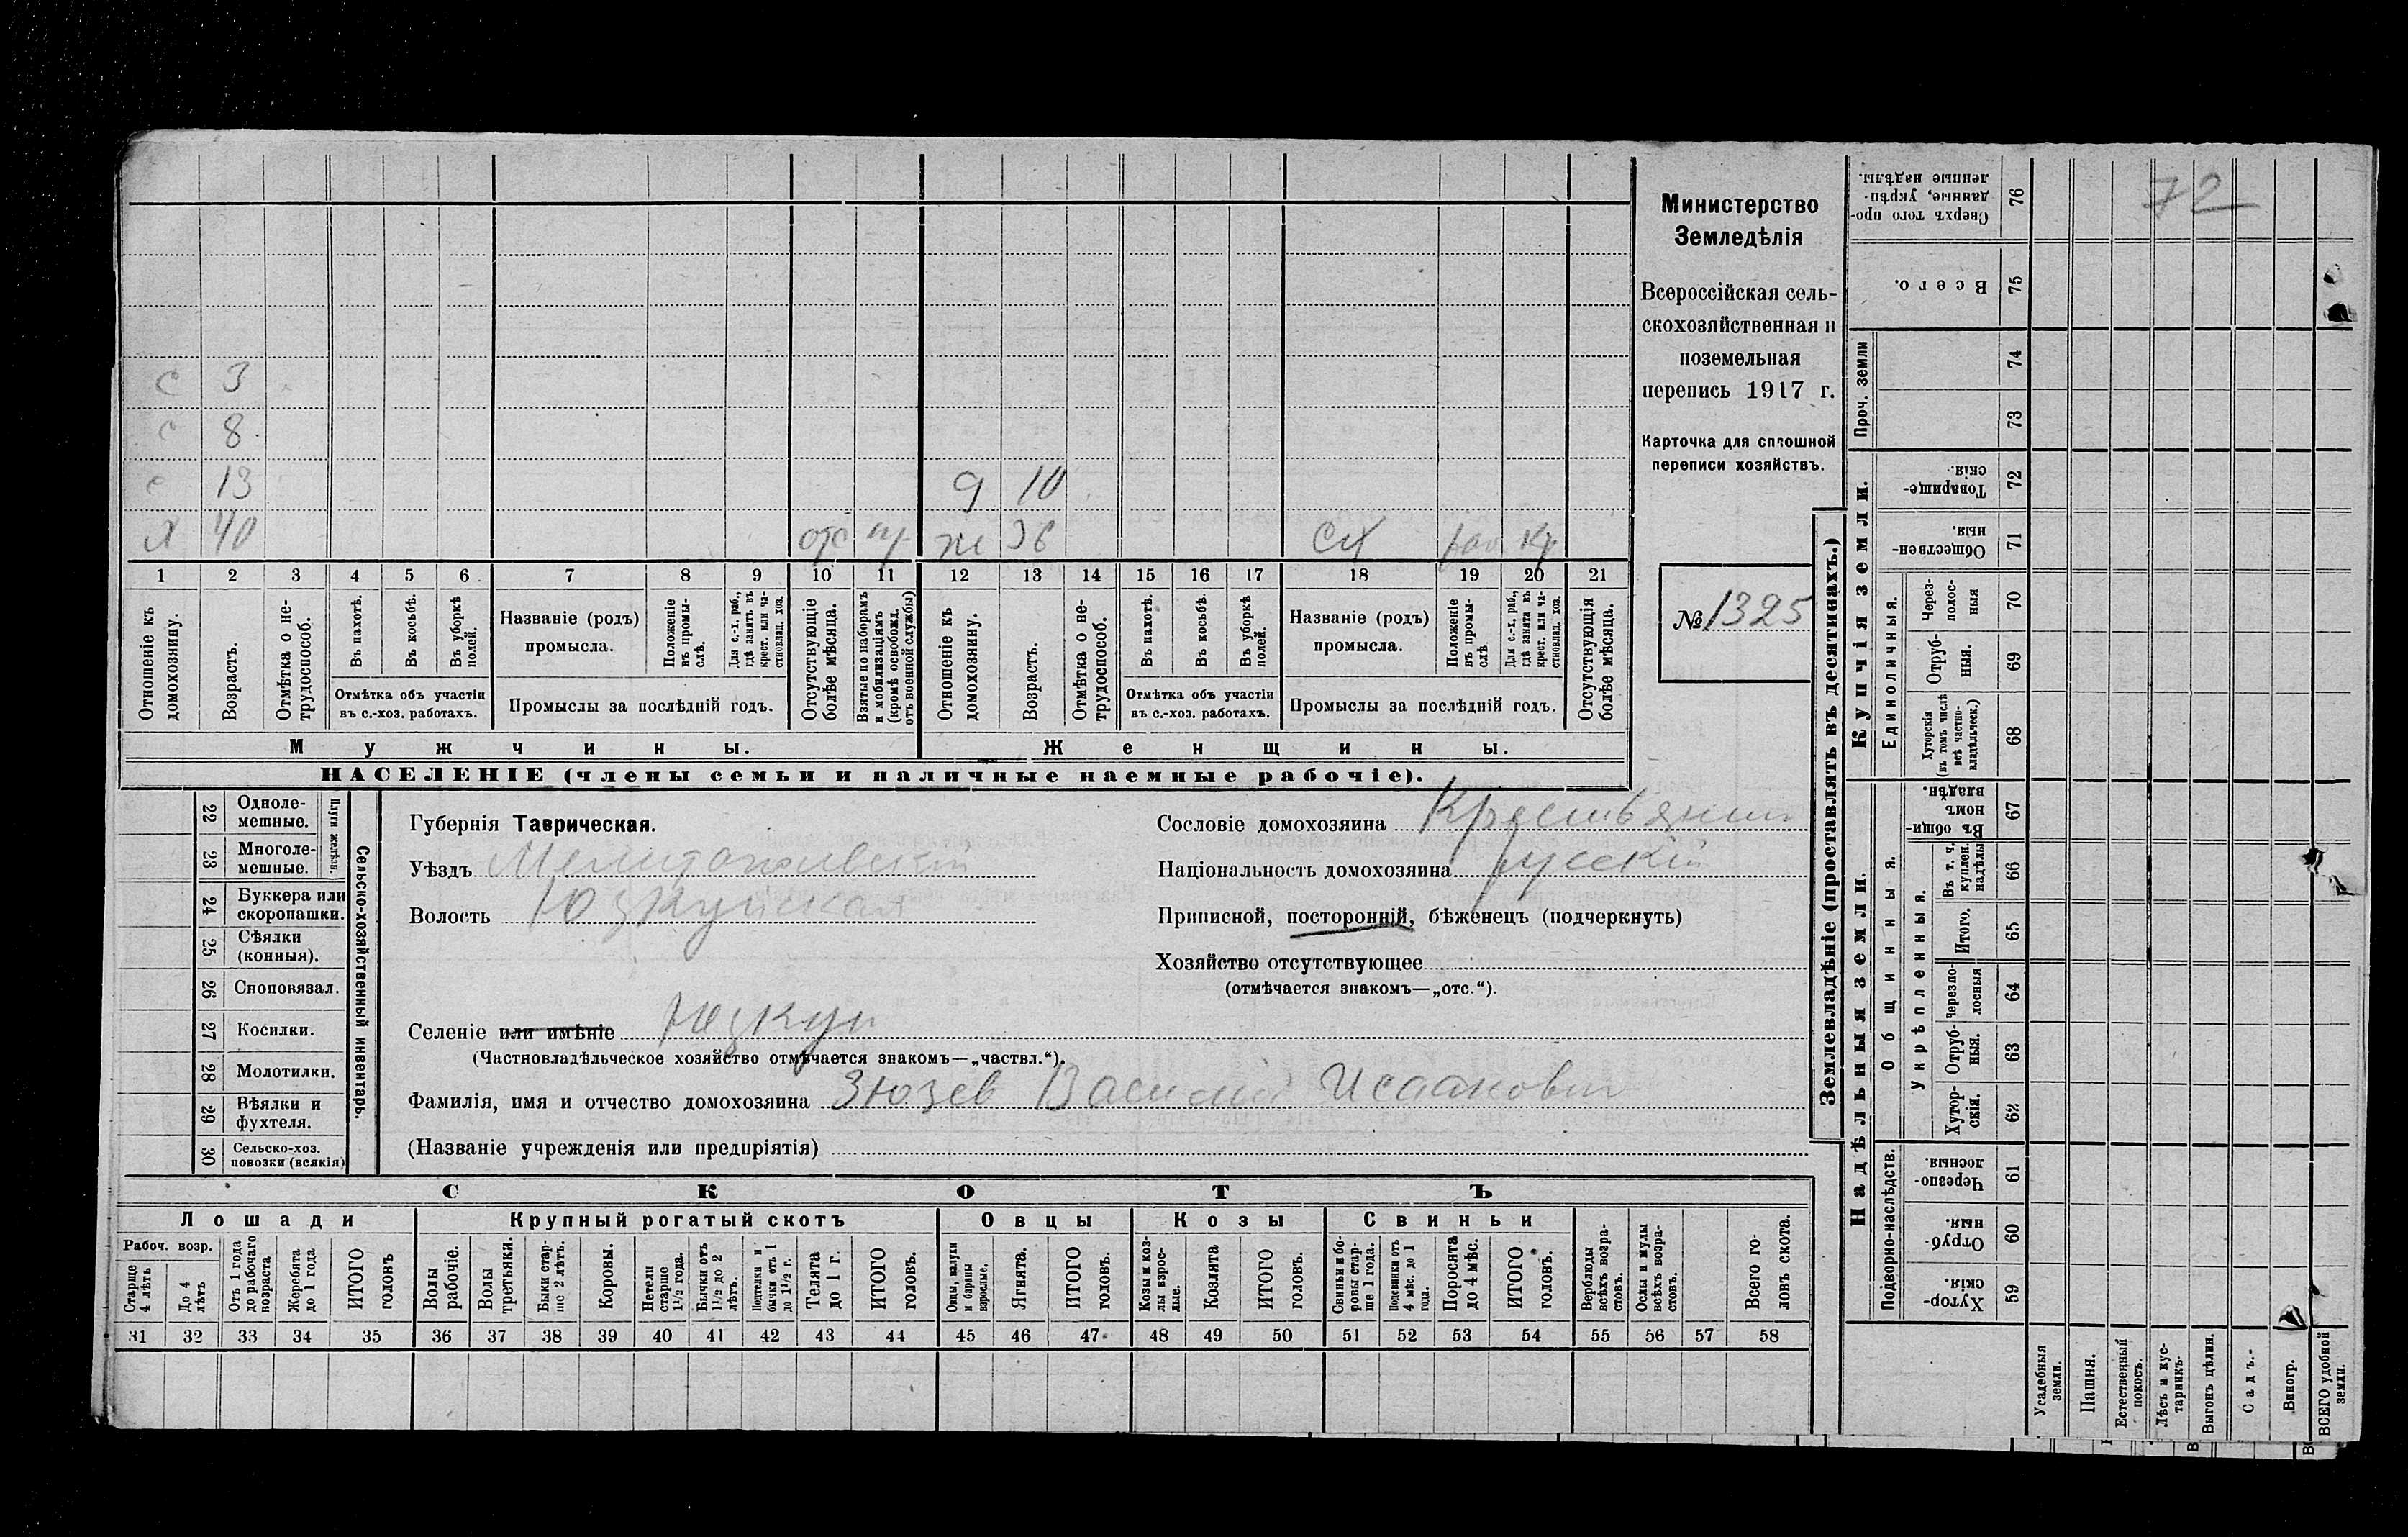 с 3
с 8
с 13 д 10
х 40 отс пр же 36 сх раб кр
1 2 3 4 5 6 7 8 9 10 11 12 13 14 15 16 17 18 19 20 21
Отношеніе къ домохозяину.
Возрастъ.
Отмѣтка о не-
трудоспособ.
Въ пахотѣ.
Въ косьбѣ.
Въ уборкѣ
полей.
Отмѣтка объ участіи
въ с.-хоз. работахъ.
Названіе (родъ)
промысла.
Положеніе
въ промы-
слѣ.
Для с.-х. раб.,
гдѣ занять въ
крест. или ча-
стновлад. хоз.
Промыслы за послѣдній годъ.
Отсутствующіе
болѣе мѣсяца.
Взятые по наборамъ
и мобилизаціямъ
(кромѣ освобожд.
отъ военной службы)
Отношеніе къ
домохозяину.
Возрастъ.
Отмѣтка о не-
трудоспособ.
Въ пахотѣ.
Въ косьбѣ.
Въ уборкѣ
полей.
Отмѣтка объ участіи
въ с.-хоз. работахъ.
Названіе (родъ)
промысла.
Положеніе
въ промы-
слѣ
Для с.-х. раб.,
гдѣ занята въ
крест. или ча-
стновлад. хоз.
Промыслы за послѣдній годъ.
Отсутствующія
болѣе мѣсяца.
Мужчины.
Женщины.
НАСЕЛЕНІЕ (члены семьи и наличные наемные рабочіе).
Министерство
Земледѣлія
Всероссійская сель-
скохозяйственная и
поземельная
перепись 1917 г.
Карточка для сплошной
переписи хозяйствъ.
№ 1325
22 Одноле-
мешные.
23 Многоле-
мешные.
Плуги желѣзн.
24 Буккера или
скоропашки.
25 Сѣялки
(конныя).
26 Сноповязал.
27 Косилки.
28 Молотилки.
29 Вѣялки и
фухтеля.
30 Сельско-хоз.
повозки (всякія)
Сельско-хозяйственный инвентарь.
Губернія Таврическая.
Уѣздъ Мелитопольскій
Волость Юзкуйская
Селеніе или имѣніе Юзкуи
(Частновладѣльческое хозяйство отмѣчается знакомъ—„частвл.“).
Фамилія, имя и отчество домохозяина Зюзев Василий Исаакович
(Названіе учрежденія или предпріятія)
Сословіе домохозяина Крестьянин
Національность домохозяина русскій
Приписной, посторонній, бѣженецъ (подчеркнуть)
Хозяйство отсутствующее
(отмѣчается знакомъ—„отс.“).
СКОТЪ
Лошади
Рабоч. возр.
Старше
4 лѣтъ
До 4
лѣтъ
Отъ 1 года
до рабочаго
возраста
Жеребята
до 1 года
ИТОГО
головъ
Крупный рогатый скотъ
Волы
рабочіе.
Волы
третьяки.
Быки стар-
ше 2 лѣтъ.
Коровы.
Нетели
старше
1½ года.
Бычки отъ
1½ до 2
лѣтъ.
Подтелки и
бычки отъ 1
до 1½ г.
Телята
до 1 г.
ИТОГО
головъ.
Овцы
Овцы, валухи
и бараны
взрослые.
Ягнята.
ИТОГО
головъ.
Козы
Козы и коз-
лы взрос-
лые.
Козлята
ИТОГО
головъ.
Свиньи
Свиньи и бо-
ровы стар-
ше 1 года.
Подсвинки отъ
4 мѣс. до 1
года.
Поросята
до 4 мѣс.
ИТОГО
головъ.
Верблюды
всѣхъ возра-
стовъ.
Ослы и мулы
всѣхъ возра-
стовъ.
Всего го-
ловъ скота.
31 32 33 34 35 36 37 38 39 40 41 42 43 44 45 46 47 48 49 50 51 52 53 54 55 56 57 58
Землевладѣніе (проставлять въ десятинахъ.)
72
Сверхъ того про-
данные, укрѣп-
ленные надѣлы.
76
Всего.
75
Проч. земли
74
73
Купчія земли.
Товарище-
скія.
72
Обществен-
ныя.
71
Единоличныя.
Через-
полос-
ныя
70
Отруб-
ныя.
69
Хуторскія
(въ томъ числѣ
всѣ частно-
владѣльческ.)
68
Надѣльныя земли.
Общинныя.
Въ общи-
номъ
владѣн.
67
Укрѣпленныя.
Въ т. ч.
куплен.
надѣлы
66
Итого.
65
Черезпо-
лосныя
64
Отруб-
ныя.
63
Хутор-
скія.
62
Подворно-наслѣдств.
Черезпо-
лосныя.
61
Отруб-
ныя.
60
Хутор-
скія.
59
Усадебныя
земли.
Пашня.
Естественный
покосъ.
Лѣсъ и кус-
тарникъ.
Выгонъ цѣлин.
Садъ.
Виногр.
ВСЕГО удобной
земли.